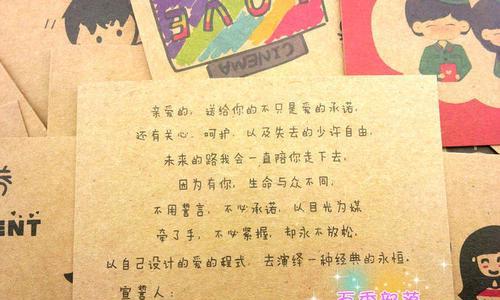 LOVE
CINEMA
亲爱的，送给你的不只是爱的承诺，
还有关心、呵护、以及失去的少许自由，
未来的路我会一直陪你走下去，
因为有你，生命与众不同，
不用誓言，不必承诺，以目光为媒
牵了手，不必紧握，却永不放松，
以自己设计的爱的程式，去演绎一种经典的永恒。
宣誓人：
券
ENT